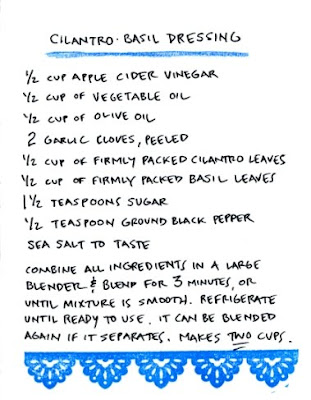 CILANTRO·BASIL DRESSING
1/2 CUP APPLE CIDER VINEGAR
1/2 CUP OF VEGETABLE OIL
1/2 CUP OF OLIVE OIL
2 GARLIC CLOVES, PEELED
1/2 CUP OF FIRMLY PACKED CILANTRO LEAVES
1/2 CUP OF FIRMLY PACKED BASIL LEAVES
1 1/2 TEASPOONS SUGAR
1/2 TEASPOON GROUND BLACK PEPPER
SEA SALT TO TASTE
COMBINE ALL INGREDIENTS IN A LARGE
BLENDER & BLEND FOR 3 MINUTES, OR
UNTIL MIXTURE IS SMOOTH. REFRIGERATE
UNTIL READY TO USE. IT CAN BE BLENDED
AGAIN IF IT SEPARATES. MAKES TWO CUPS.